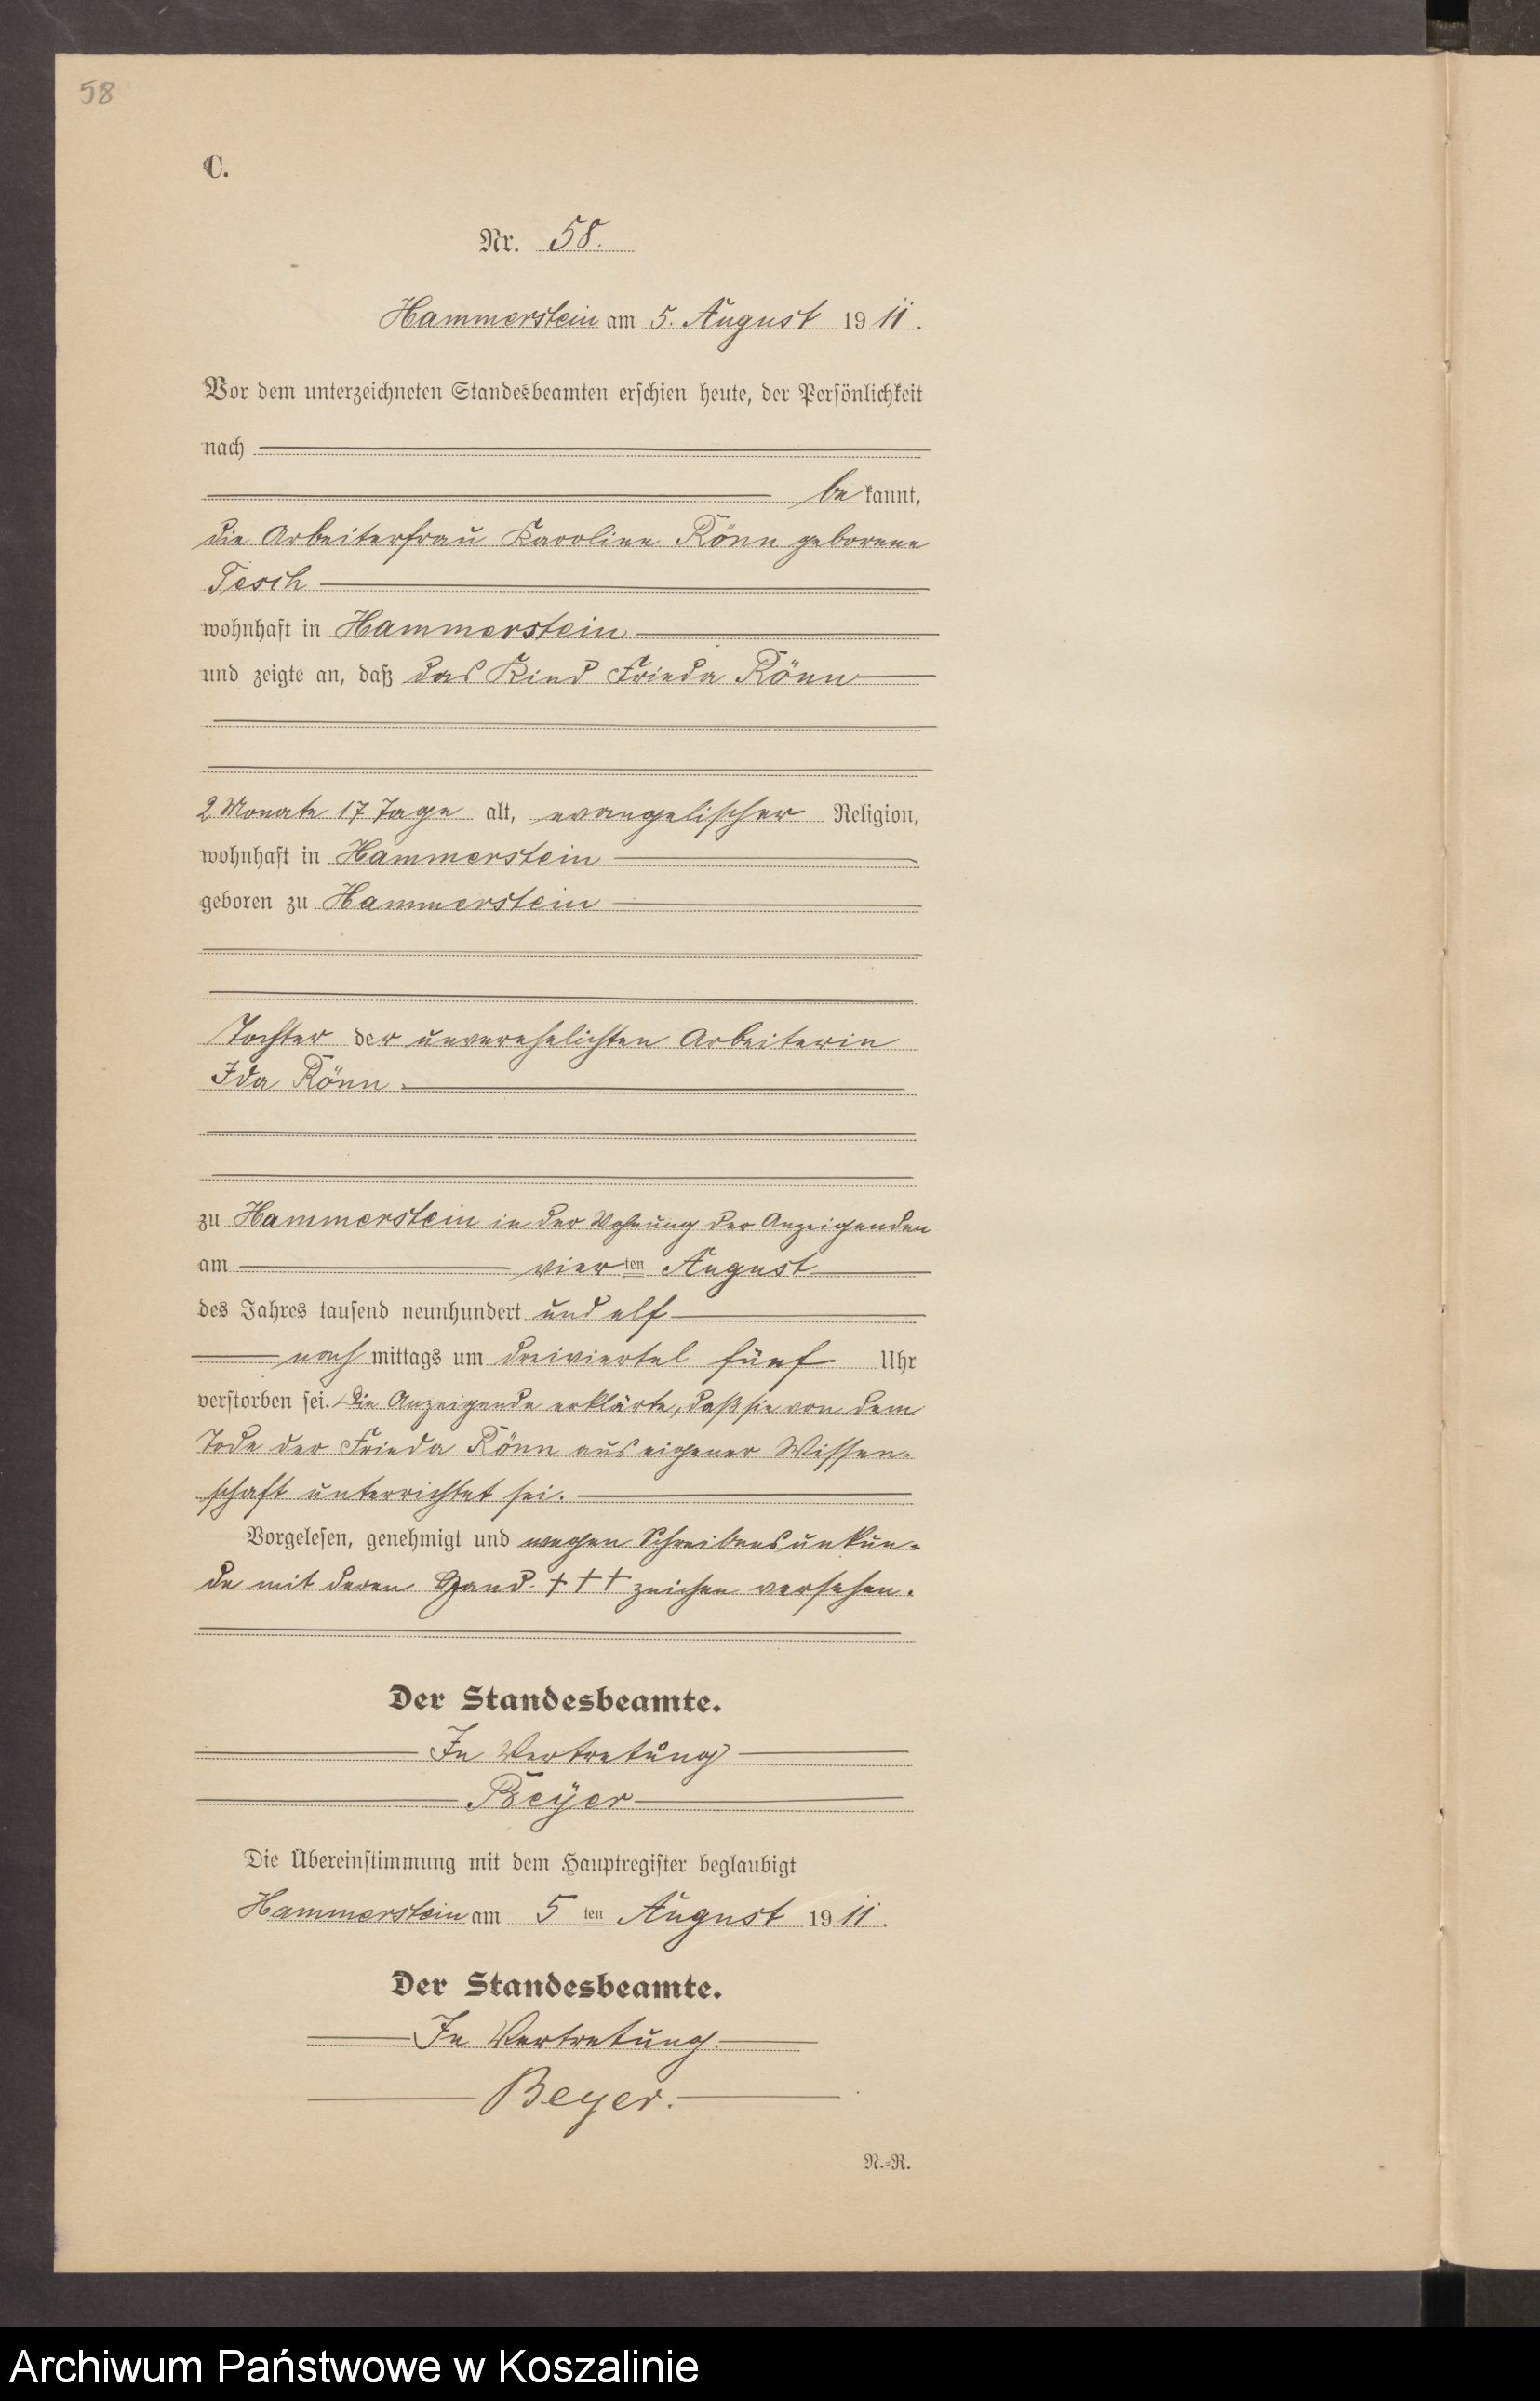 58
C.
Nr. 58.
Hammerstein am 5. August 1911.
Vor dem unterzeichneten Standesbeamten erschien heute, der Persönlichkeit
nach
bekannt,
die Arbeiterfrau Karoline Rönn geborene
Tesch
wohnhaft in Hammerstein
und zeigte an, daß das Kind Frieda Rönn
2 Monate 17 Tage alt, evangelischer Religion,
wohnhaft in Hammerstein
geboren zu Hammerstein
Tochter der unverehelichten Arbeiterin
Ida Rönn.
zu Hammerstein in der Wohnung der Anzeigenden
am vierten August
des Jahres tausend neunhundert und elf
nachmittags um dreiviertel fünf Uhr
verstorben sei. Die Anzeigende erklärte, daß sie von dem
Tode der Frieda Rönn aus eigener Wissen-
schaft unterrichtet sei.
Vorgelesen, genehmigt und wegen Schreibensunkun-
de mit deren Hand- +++ zeichen versehen.
Der Standesbeamte.
In Vertretung
Beyer
Die Übereinstimmung mit dem Hauptregister beglaubigt
Hammerstein am 5ten August 1911.
Der Standesbeamte.
In Vertretung.
Beyer.
N.-R.
Archiwum Państwowe w Koszalinie